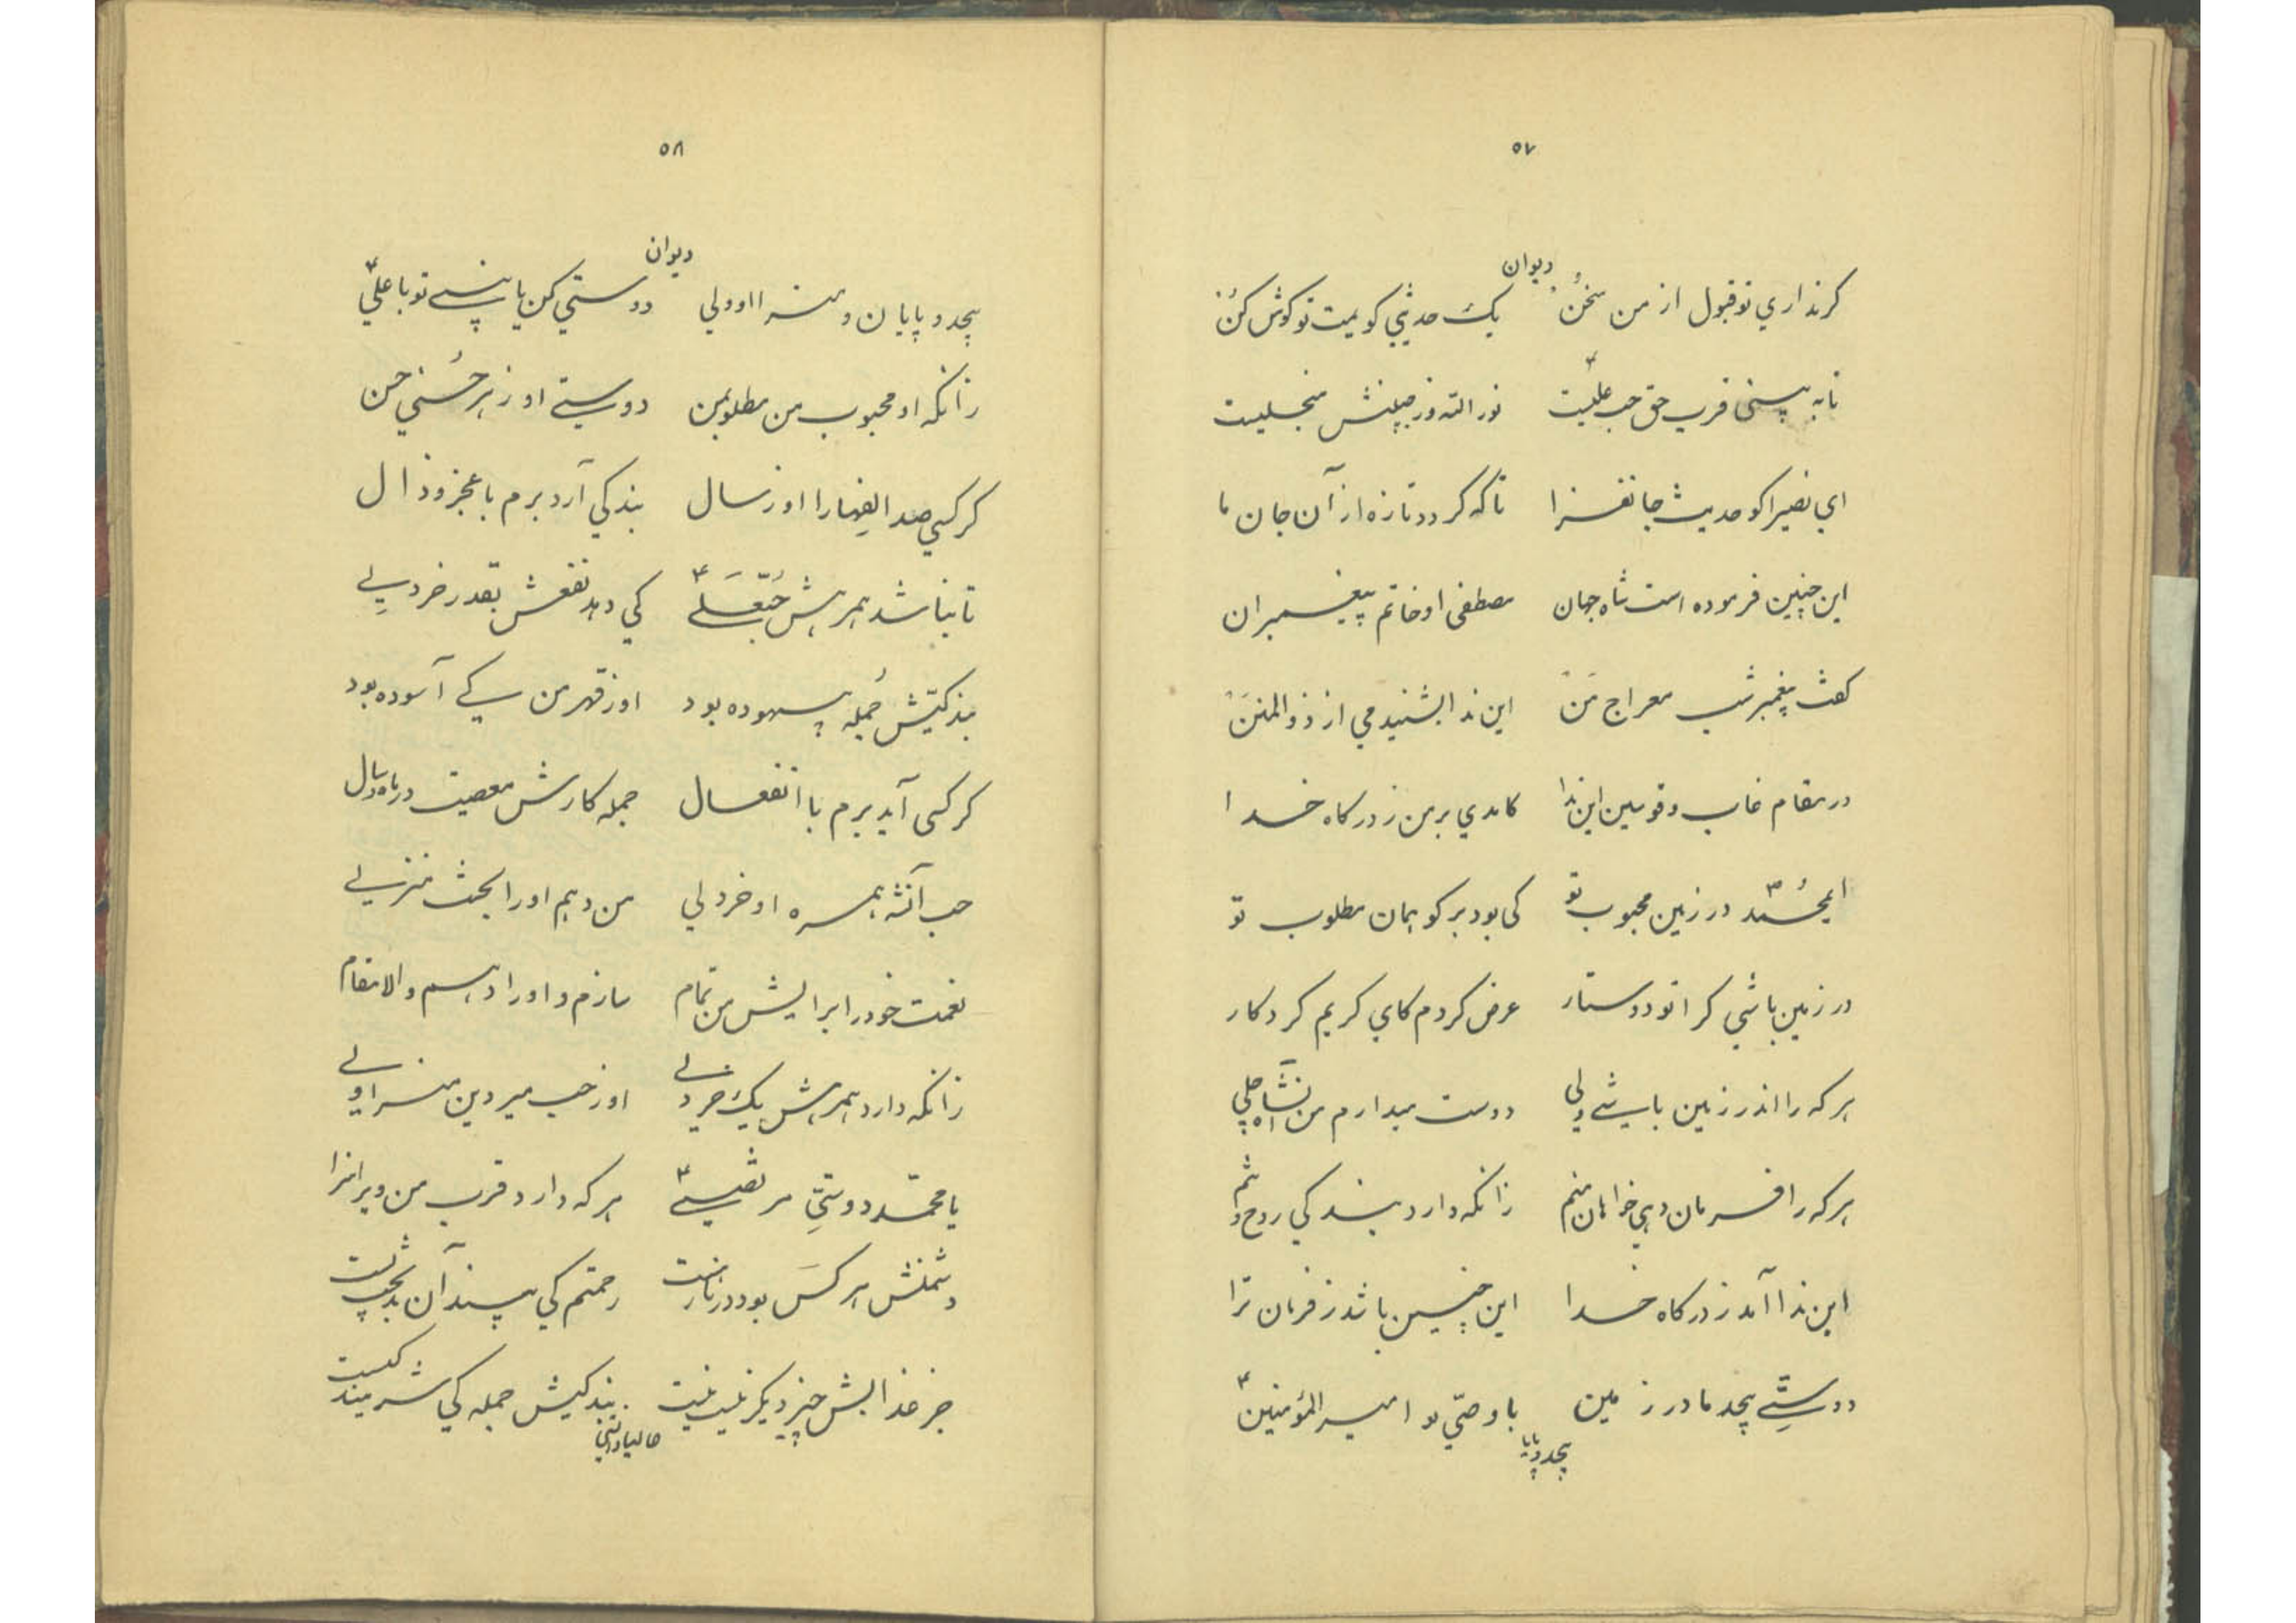 ۵۷
دیوان
کرنداري توقبول از من سخنُ یک حدیثي کویمت توکوش کنُ
تابه بینی قرب حق حب علیست نور الله وز جبینش منجلیست
اي نصیرا کو حدیث جانفزا تاکه کردد تازه از آن جان ما
این چنین فرموده است شاه جهان مصطفی او خاتم پیغمبران
کفت پیغمبر شب معراج مَنْ این ندا بشنیدمي از ذوالمننْ
در مقام قاب وقوسین این ندا کامدي بر من ز درکاه خدا
ایمحُمّد در زمین محبوب تو کی بود بر کو همان مطلوب تو
در زمین باشي کرا تو دوستار عرض کردم کاي کریم کردکار
هر که را اندر زمین باشے ولي دوست میدارم من
هر که را فرمان دهي خواهان منم زانکه دارد بندکي روح و
این ندا آمد ز درکاه خدا این چنین باشد ز فرمان ترا
دوستّے بیحد ما در زمین با وصّي تو امیر المؤمنین
بیحد وپایا
۵۸
دیوان
بیحد وپایان ومنزا او ولي دوستي کن یا نبے تو با علّي
زانکه او محبوب من مطلوب من دوستے او ز هر حُسني حسن
کر کسي صد الفها را او ز سال بندکي آرد برم با عجز و ذال
تا نباشد همرهش حُبّعَلے کي دهد نفعش بقدر خردلِے
بندکیّش جُمله بیهوده بود او ز قهر من کے آسوده بود
کر کسی آید برم با انفعال جمله کارش معصیت در ماه وسال
حب آنشه همره او خردلي من دهم او را بجنت منزلے
نعمت خود را برایش من تمام سازم و او را دهم والا مقام
زانکه دارد همرهش یک خردلے او ز حب میر دین
یا محمّد دوستيِّ مرتضے هر که دارد قرب من ویرا سزا
دشمنش هر کسَ بود در نار رحمتم کي بیند آن
جز عذابش چیز دیکر نیست نیست بندکیش جمله کي